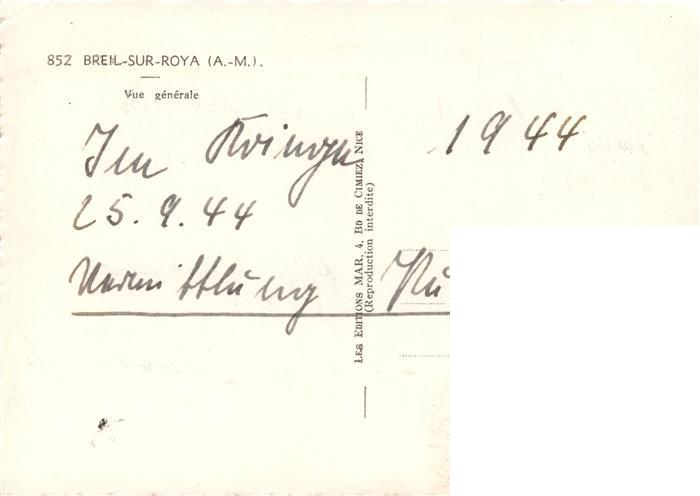 852 BREIL-SUR-ROYA (A.-M.).
Vue générale
Im Kriege 1944
25.9.44
Vermittlung
LES EDITIONS MAR, 4, BD DE CIMIEZ, NICE
(Reproduction interdite)